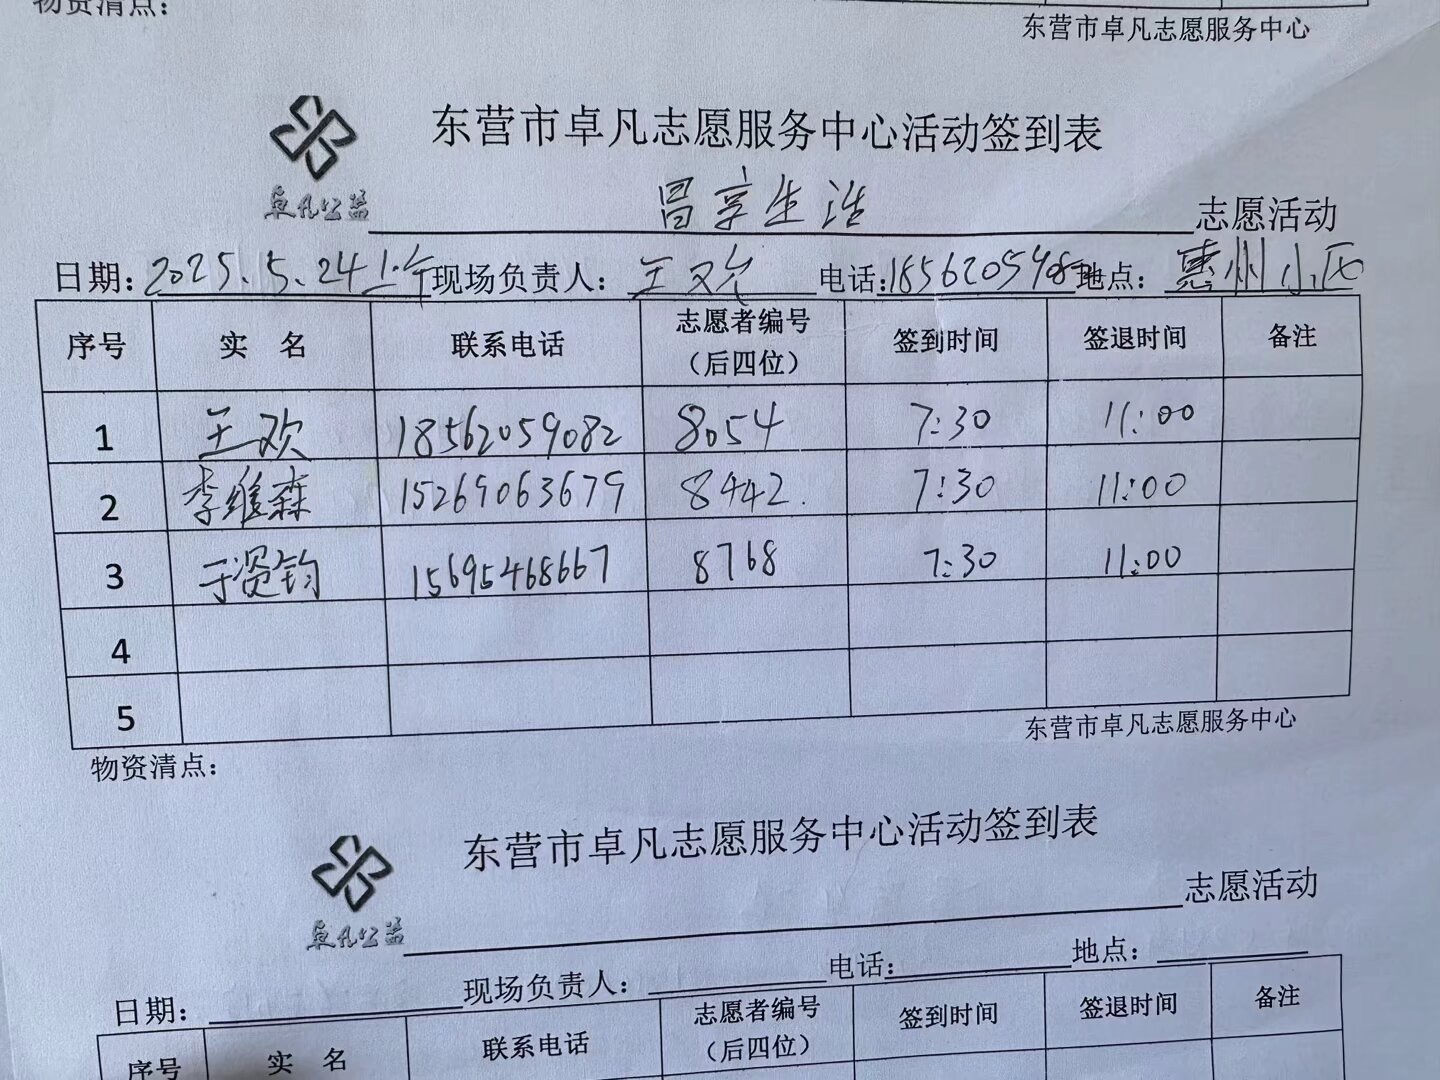 物资清点：
东营市卓凡志愿服务中心
东营市卓凡志愿服务中心活动签到表
卓凡公益
昌享生活 志愿活动
日期：2025.5.24上午 现场负责人：王欢 电话：18562059082 地点：惠州小区
序号 实 名 联系电话 志愿者编号（后四位） 签到时间 签退时间 备注
1 王欢 18562059082 8054 7:30 11:00
2 李维森 15269063679 8442. 7:30 11:00
3 于资钧 15695468667 8768 7:30 11:00
4
5
东营市卓凡志愿服务中心
物资清点：
东营市卓凡志愿服务中心活动签到表
卓凡公益
志愿活动
日期： 现场负责人： 电话： 地点：
序号 实 名 联系电话 志愿者编号（后四位） 签到时间 签退时间 备注